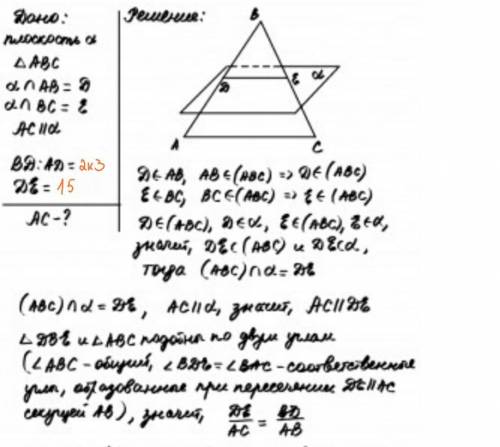 Дано:
плоскость α
△ABC
α ∩ AB = D
α ∩ BC = E
AC ∥ α
BD : AD = 2к3
DE = 15
AC - ?
Решение:
B
D
E
α
A
C
D ∈ AB, AB ∈ (ABC) => D ∈ (ABC)
E ∈ BC, BC ∈ (ABC) => E ∈ (ABC)
D ∈ (ABC), D ∈ α, E ∈ (ABC), E ∈ α,
значит, DE ⊂ (ABC) и DE ⊂ α,
тогда (ABC) ∩ α = DE
(ABC) ∩ α = DE, AC ∥ α, значит, AC ∥ DE
∠DBE и ∠ABC подобны по двум углам
(∠ABC - общий, ∠BDE = ∠BAC - соответственные
углы, образованные при пересечении DE ∥ AC
секущей AB), значит, DE/AC = BD/AB